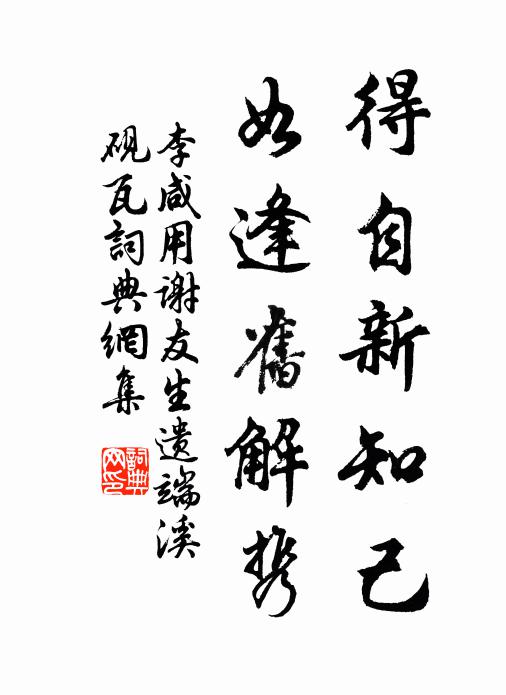 得自新知己
如逢舊解携
李咸用谢友生遗端溪
砚瓦詞典網集
詞典网印